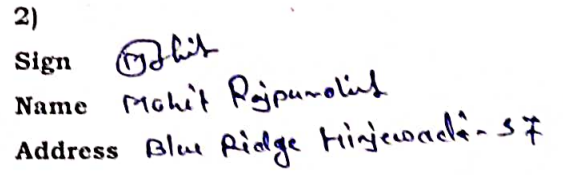 2)
Sign Mohit
Name Mohit Rajpurohit
Address Blue Ridge Hinjewadi - 57